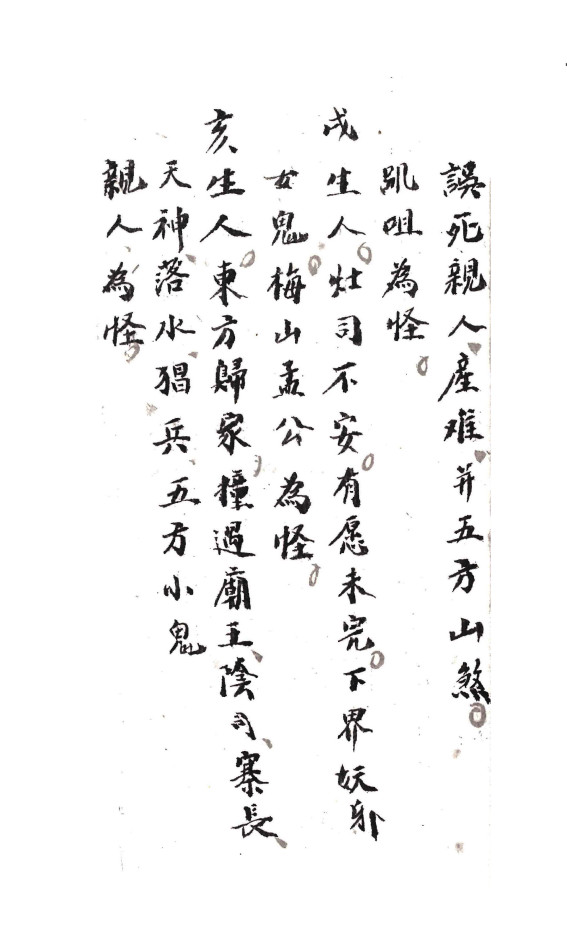 誤死親人產难并五方山煞
咀為怪
戌生人灶司不安有愿未完下界妖邪
女鬼梅山孟公為怪
亥生人東方歸家撞過廟王陰司寨長
天神落水猖兵五方小鬼
親人為怪